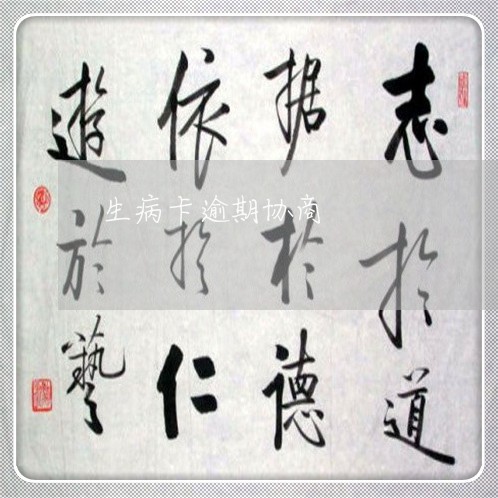 志於道
据於德
依於仁
遊於藝
生病卡逾期协商